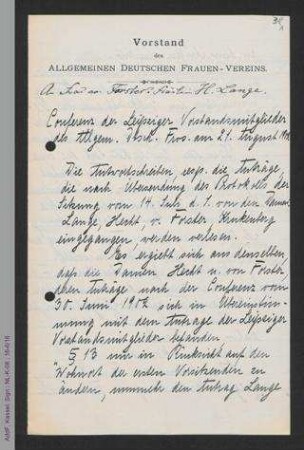 38
Vorstand
des
ALLGEMEINEN DEUTSCHEN FRAUEN-VEREINS.
H. Lange.
Conferenz der Leipziger Vorstandsmitglieder
des Allgem. Dtsch. Frv. am 21. August
Die Antwortschreiben, resp. die Anträge,
die nach Übersendung des Protokolls der
Sitzung vom 14. Juli d. J. von den Damen
Lange, Hecht, v. Forster
eingegangen, werden verlesen.
Es ergiebt sich aus denselben,
daß die Damen Hecht u. von Forster
deren Anträge nach der Conferenz vom
30. Juni sich in Übereinstim-
mung mit dem Antrage der Leipziger
Vorstandsmitglieder befanden
§ 13 nur in Rücksicht auf den
Wohnort der ersten Vorsitzenden zu
ändern, nunmehr den Antrag Lange